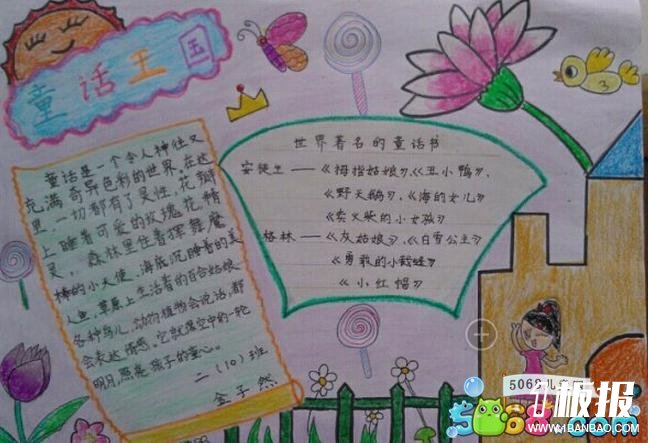 童话王国
童话是一个令人神往又
充满奇异色彩的世界,在这
里一切都有了灵性,花瓣
上睡着可爱的玫瑰花精
灵,森林里住着挥舞魔
棒的小天使,海底沉睡着的美
人鱼,草原上生活着的百合姑娘,
各种鸟儿,动物植物会说话,都
会表达情感,它就像空中的一轮
明月,照亮孩子的童心。
二(10)班
金子然
世界著名的童话书
安徒生——《拇指姑娘》、《丑小鸭》、
《野天鹅》、《海的女儿》
《卖火柴的小女孩》
格林——《灰姑娘》、《白雪公主》
《勇敢的小裁缝》
《小红帽》
3
5068儿
板报
WWW.1BANBAO.COM